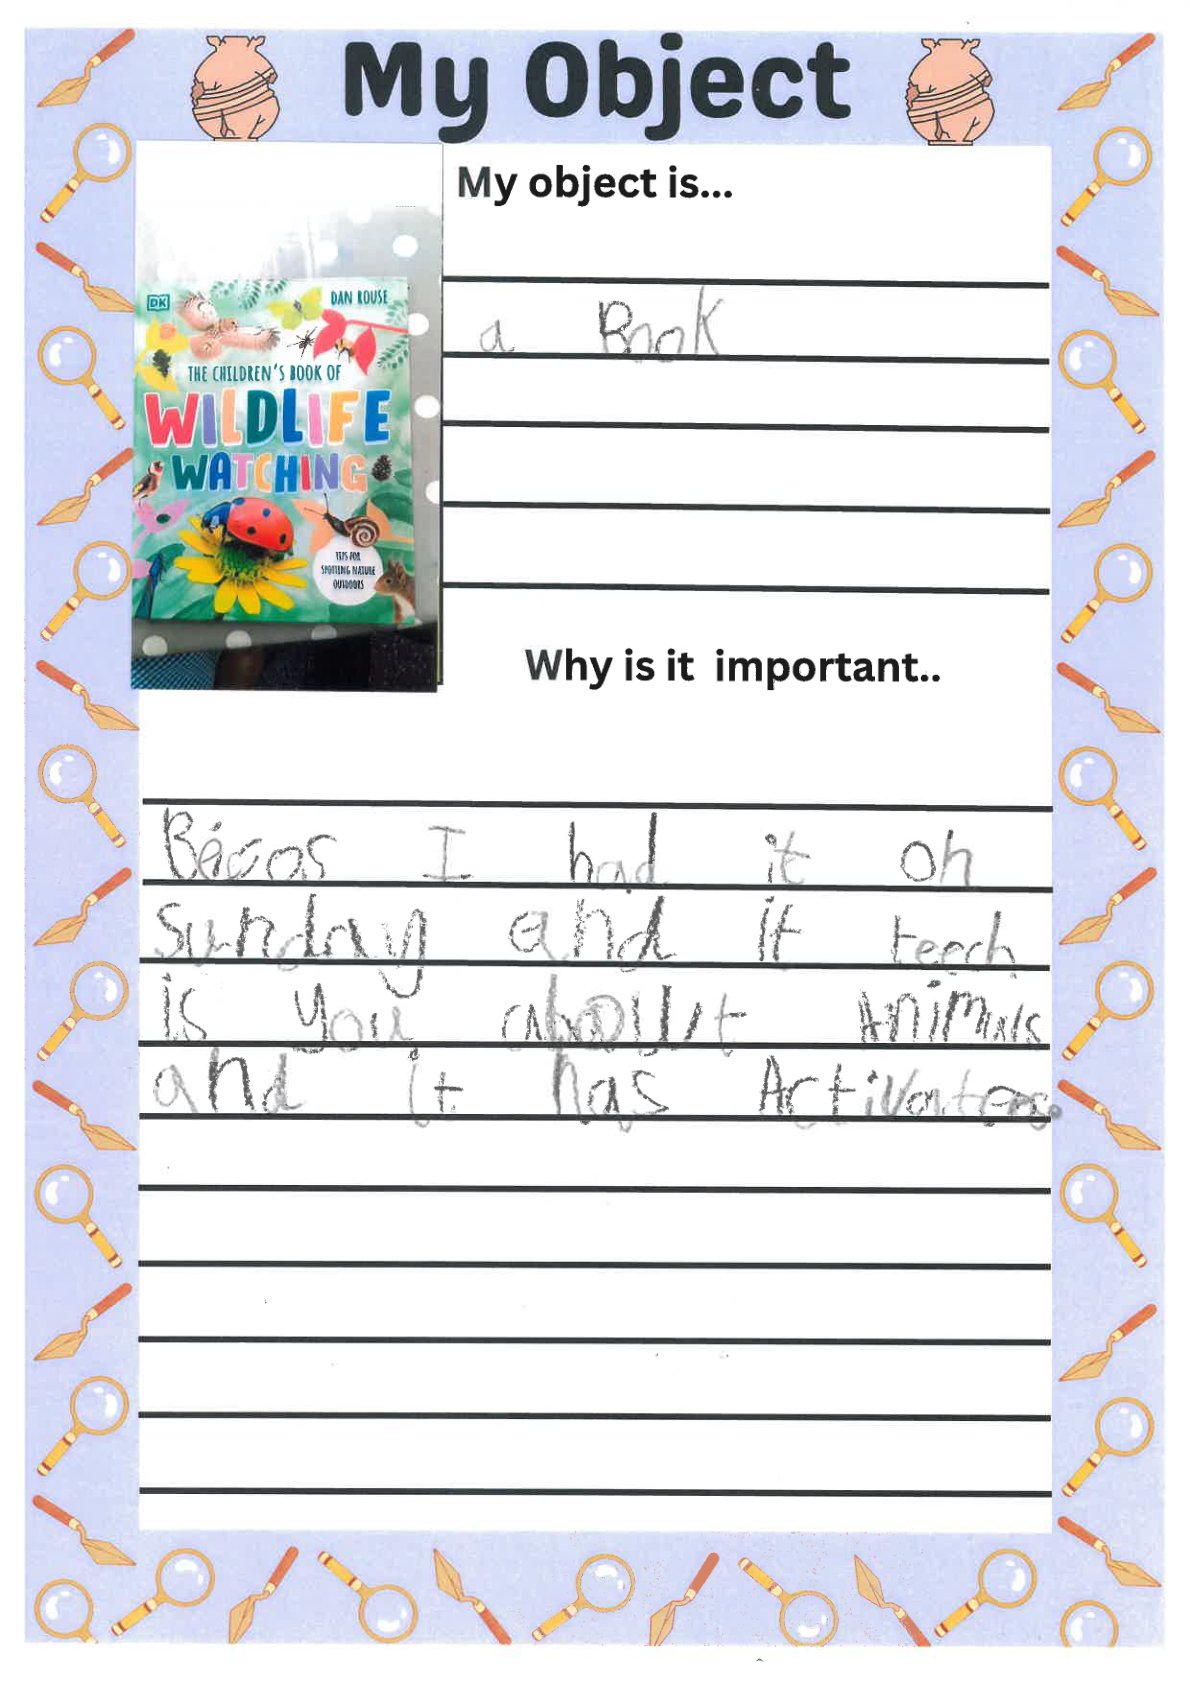 My Object
My object is...
DK
DAN ROUSE
THE CHILDREN'S BOOK OF
WILDLIFE
WATCHING
TIPS FOR
SPOTTING NATURE
OUTDOORS
a Book
Why is it important..
Becos I had it oh
Sunday and it teech
is you about Animals
and it has Activates.